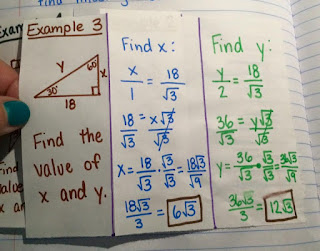 find missing
Exam
Example 3
y
60°
x
30°
18
Find the
value of
x and y.
Find x:
x/1 = 18/√3
18/√3 = x√3/√3
x = 18/√3 · √3/√3 = 18√3/√9
18√3/3 = 6√3
Find y:
y/2 = 18/√3
36/√3 = y√3/√3
y = 36/√3 · √3/√3 = 36√3/√9
36√3/3 = 12√3
Find
value
x an